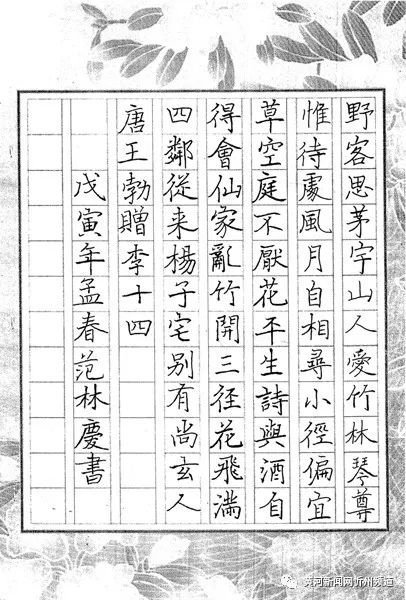 野客思茅宇山人愛竹林琴尊
惟待處風月自相尋小徑偏宜
草空庭不厭花平生詩與酒自
得會仙家亂竹開三徑花飛滿
四鄰從来楊子宅别有尚玄人
唐王勃贈李十四
戊寅年孟春范林慶書
黄河新闻网忻州频道